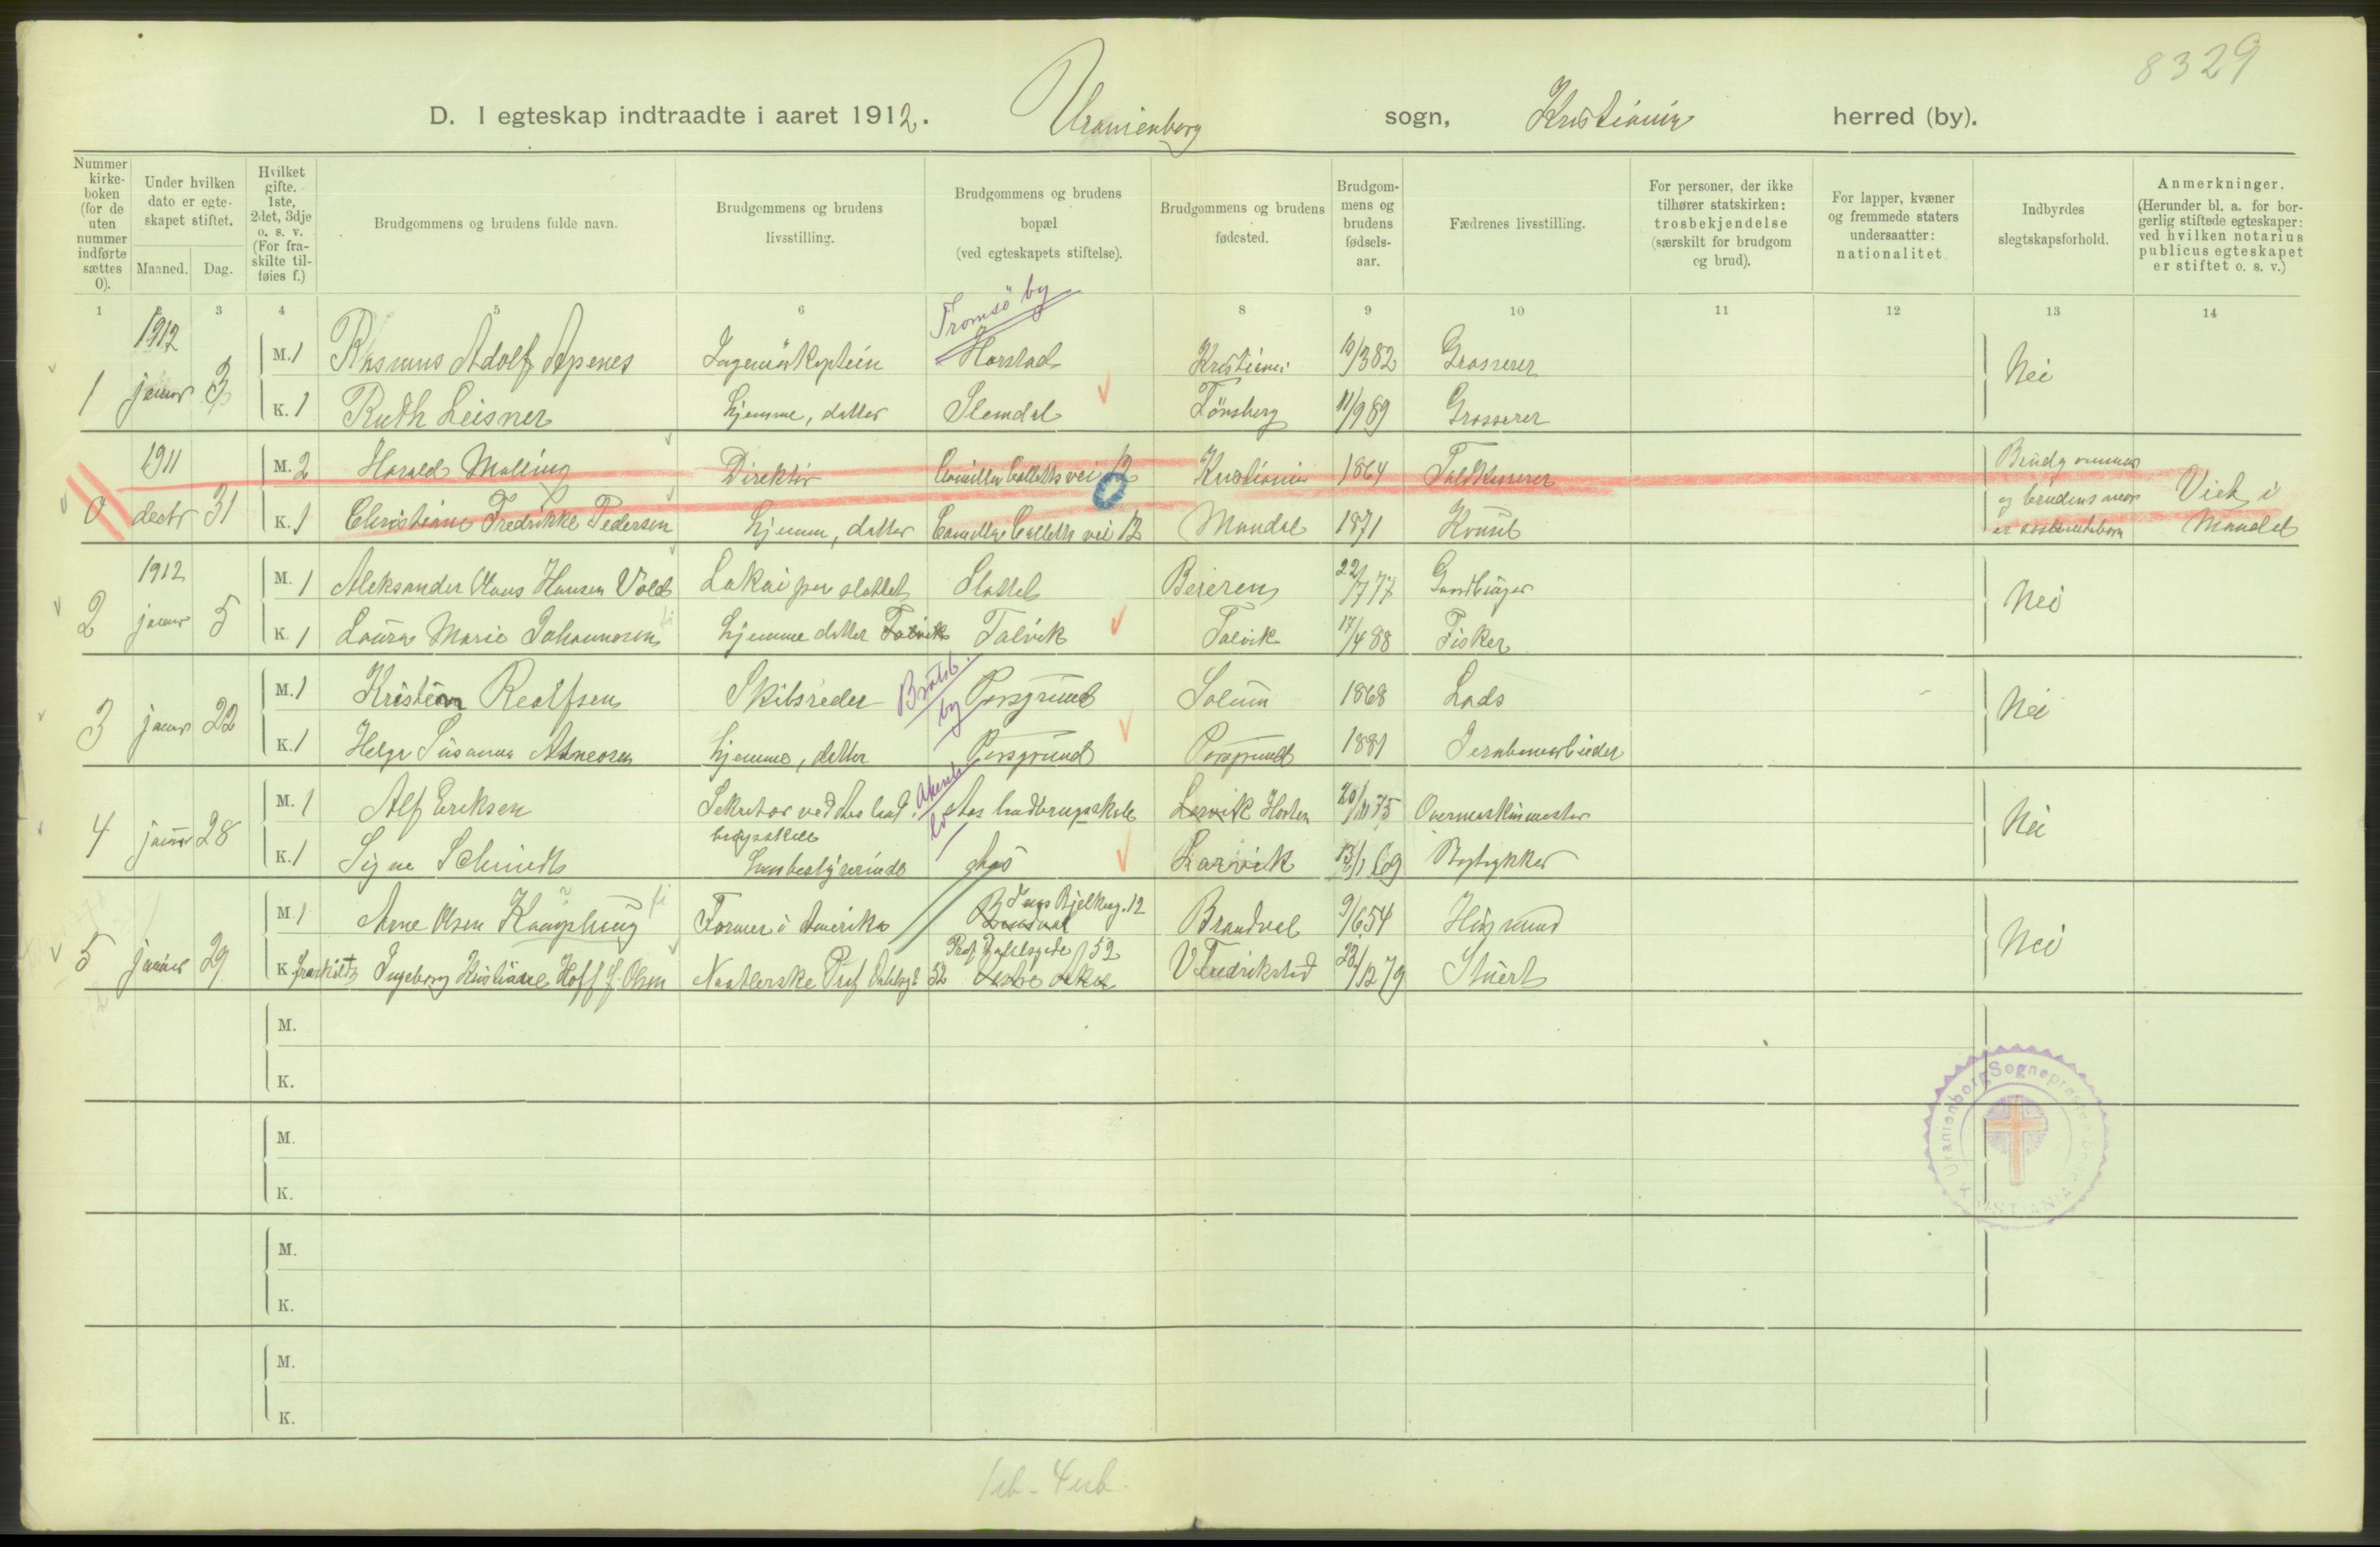 8329
D. I egteskap indtraadte i aaret 1912. Uranienborg sogn, Kristiania herred (by).
Nummer kirke-boken (for de uten nummer indførte sættes 0).
Under hvilken dato er egte-skapet stiftet.
Maaned. Dag.
Hvilket gifte. 1ste, 2det, 3dje o. s. v. (For fra-skilte til-føies f.)
Brudgommens og brudens fulde navn.
Brudgommens og brudens livsstilling.
Brudgommens og brudens bopæl (ved egteskapets stiftelse).
Brudgommens og brudens fødested.
Brudgom-mens og brudens fødsels-aar.
Fædrenes livsstilling.
For personer, der ikke tilhører statskirken: trosbekjendelse (særskilt for brudgom og brud).
For lapper, kvæner og fremmede staters undersaatter: nationalitet.
Indbyrdes slegtskapsforhold.
Anmerkninger. (Herunder bl. a. for bor-gerlig stiftede egteskaper: ved hvilken notarius publicus egteskapet er stiftet o. s. v.)
1 3 4 5 6 8 9 10 11 12 13 14
Tromsö by
1912
M. 1 Rasmus Adolf Apenes Ingeniörkaptein Harstad Kristiania 10/3 82 Grosserer
1 januar 3 Nei
K. 1 Ruth Leisner hjemme, datter Slemdal Tönsberg 11/9 89 Grosserer
1911
M. 2 Harald Malling Direktör Camilla Colletts vei 12 Kristiania 1864 Toldkasserer Brudgommens
0 decbr 31 og brudens mor er söskendebarn Viet i Mandal
K. 1 Christiane Fredrikke Pedersen hjemme, datter Camilla Colletts vei 12 Mandal 1871 Konsul
1912
M. 1 Aleksander Claus Hansen Vold Lakai paa slottet Slottet Beieren 22/7 77 Gaardbruger
2 januar 5 Nei
K. 1 Laura Marie Johannesen hjemme datter Talvik Talvik Talvik 17/4 88 Fisker
Bratsb. by
M. 1 Kristian Realfsen Skibsreder Porsgrund Solum 1868 Lods
3 januar 22 Nei
K. 1 Helga Susanna hjemme, datter Porsgrund Porsgrund 1881 Jernbanearbeider
Akersh.
M. 1 Alf Eriksen Sekretær ved Aas landbrugsskole Aas landbrugsskole Larvik Horten 20/11 75 Overmaskinmester
4 januar 28 Nei
K. 1 Signe Schmidt Husbestyrerinde Aas Larvik 13/1 69 Bogtrykker
M. 1 Arne Olsen Kongshaug Farmer i Amerika Brandval Jens Bjelkesg. 12 Brandval 9/6 54 Husmand
5 januar 29 Nei
K. fraskilt Ingeborg Kristiane Hoff f. Olsen Naatlerske Prof Dahlsgt 52 Prof Dahlsgade 52 Vestre Aker V Fredrikstad 23/12 79 Stuert
M.
K.
M.
K.
M.
K.
M.
K.
Uranienborg Sogneprestembede KRISTIANIA